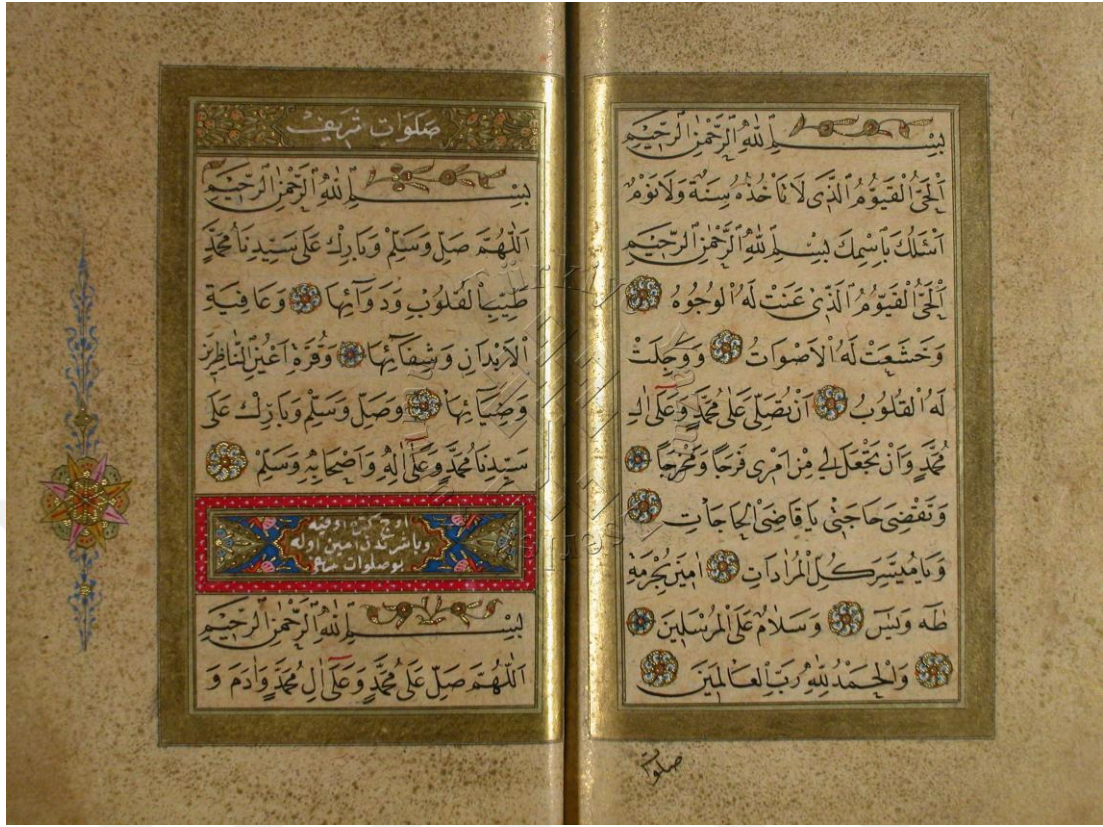 بِسْمِ اللّٰهِ الرَّحْمٰنِ الرَّحِيْمِ
اَلْحَىُّ الْقَيُّوْمُ الَّذِى لَا تَاْخُذُهُ سِنَةٌ وَلَا نَوْمٌ
اَسْئَلُكَ بِاسْمِكَ بِسْمِ اللّٰهِ الرَّحْمٰنِ الرَّحِيْمِ
اَلْحَىُّ الْقَيُّوْمُ الَّذِى عَنَتْ لَهُ الْوُجُوهُ
وَخَشَعَتْ لَهُ الْاَصْوَاتُ وَوَجِلَتْ
لَهُ الْقُلُوْبُ اَنْ تُصَلِّىَ عَلٰى مُحَمَّدٍ وَعَلٰى اٰلِ
مُحَمَّدٍ وَاَنْ تَجْعَلَ لِى مِنْ اَمْرِى فَرَجًا وَمَخْرَجًا
وَتَقْضِىَ حَاجَتِى يَا قَاضِىَ الْحَاجَاتِ
وَيَا مُيَسِّرَ كُلِّ الْمُرَادَاتِ اٰمِيْنَ بِحُرْمَةِ
طٰهٰ وَيٰسٓ وَسَلَامٌ عَلَى الْمُرْسَلِيْنَ
وَالْحَمْدُ لِلّٰهِ رَبِّ الْعَالَمِيْنَ
صلوات
صَلَوَات شَرِيف
بِسْمِ اللّٰهِ الرَّحْمٰنِ الرَّحِيْمِ
اَللّٰهُمَّ صَلِّ وَسَلِّمْ وَبَارِكْ عَلٰى سَيِّدِنَا مُحَمَّدٍ
طَبِيْبِ الْقُلُوْبِ وَدَوَآئِهَا وَعَافِيَةِ
الْاَبْدَانِ وَشِفَآئِهَا وَقُرَّةِ اَعْيُنِ النَّاظِرِيْنَ
وَضِيَآئِهَا وَصَلِّ وَسَلِّمْ وَبَارِكْ عَلٰى
سَيِّدِنَا مُحَمَّدٍ وَعَلٰى اٰلِهِ وَاَصْحَابِهِ وَسَلِّمْ
اوج كره اوقيه
امين اوله
بو صلوات
بِسْمِ اللّٰهِ الرَّحْمٰنِ الرَّحِيْمِ
اَللّٰهُمَّ صَلِّ عَلٰى مُحَمَّدٍ وَعَلٰى اٰلِ مُحَمَّدٍ وَاٰدَمَ وَ